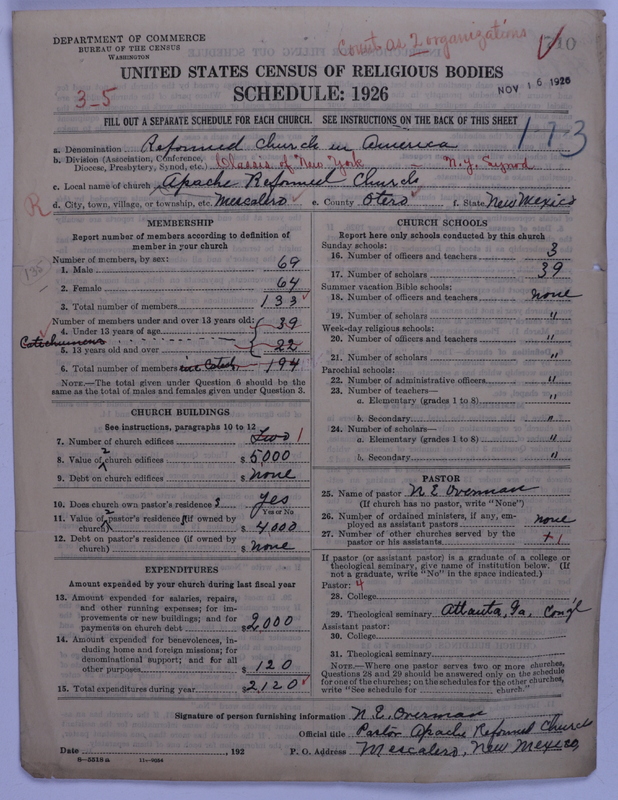 DEPARTMENT OF COMMERCE
BUREAU OF THE CENSUS
WASHINGTON
Count as 2 organizations
UNITED STATES CENSUS OF RELIGIOUS BODIES
SCHEDULE: 1926
NOV 16 1926
3-5
FILL OUT A SEPARATE SCHEDULE FOR EACH CHURCH. SEE INSTRUCTIONS ON THE BACK OF THIS SHEET
1-7-3
a. Denomination Reformed Church in America
b. Division (Association, Conference, Diocese, Presbytery, Synod, etc.) Classis of New York — N.Y. Synod
c. Local name of church Apache Reformed Church
R
d. City, town, village, or township, etc. Mescalero e. County Otero f. State New Mexico
MEMBERSHIP
Report number of members according to definition of
member in your church
135
Number of members, by sex:
1. Male 69
2. Female 64
3. Total number of members 133
Number of members under and over 13 years old:
4. Under 13 years of age 39
Catechumens
5. 13 years old and over 22
6. Total number of members 194
NOTE.—The total given under Question 6 should be
the same as the total of males and females given under Question 3.
CHURCH BUILDINGS
See instructions, paragraphs 10 to 12
7. Number of church edifices Two 1
8. Value of 2 church edifices $ 5,000
9. Debt on church edifices $ None
10. Does church own pastor's residence 3 Yes
Yes or No
11. Value of 2 pastor's residence (if owned by
church) $ 4,000
12. Debt on pastor's residence (if owned by
church) $ None
EXPENDITURES
Amount expended by your church during last fiscal year
13. Amount expended for salaries, repairs,
and other running expenses; for im-
provements or new buildings; and for
payments on church debt $ 2,000
14. Amount expended for benevolences, in-
cluding home and foreign missions; for
denominational support; and for all
other purposes $ 120
15. Total expenditures during year $ 2,120
CHURCH SCHOOLS
Report here only schools conducted by this church
Sunday schools:
16. Number of officers and teachers 3
17. Number of scholars 39
Summer vacation Bible schools:
18. Number of officers and teachers none
19. Number of scholars "
Week-day religious schools:
20. Number of officers and teachers "
21. Number of scholars "
Parochial schools:
22. Number of administrative officers "
23. Number of teachers—
a. Elementary (grades 1 to 8) "
b. Secondary "
24. Number of scholars—
a. Elementary (grades 1 to 8) "
b. Secondary "
PASTOR
25. Name of pastor N. E. Overman
(If church has no pastor, write "None")
26. Number of ordained ministers, if any, em-
ployed as assistant pastors none
27. Number of other churches served by the
pastor or his assistants +1
If pastor (or assistant pastor) is a graduate of a college or
theological seminary, give name of institution below. (If
not a graduate, write "No" in the space indicated.)
Pastor: 4
28. College
29. Theological seminary Atlanta, Ga. Cong'l
Assistant pastor:
30. College
31. Theological seminary
NOTE.—Where one pastor serves two or more churches,
Questions 28 and 29 should be answered only on the schedule
for one of the churches; on the schedules for the other churches,
write "See schedule for church."
Signature of person furnishing information N. E. Overman
Official title Pastor Apache Reformed Church
Date , 192 P. O. Address Mescalero, New Mexico,
8—5518 a 11—9264